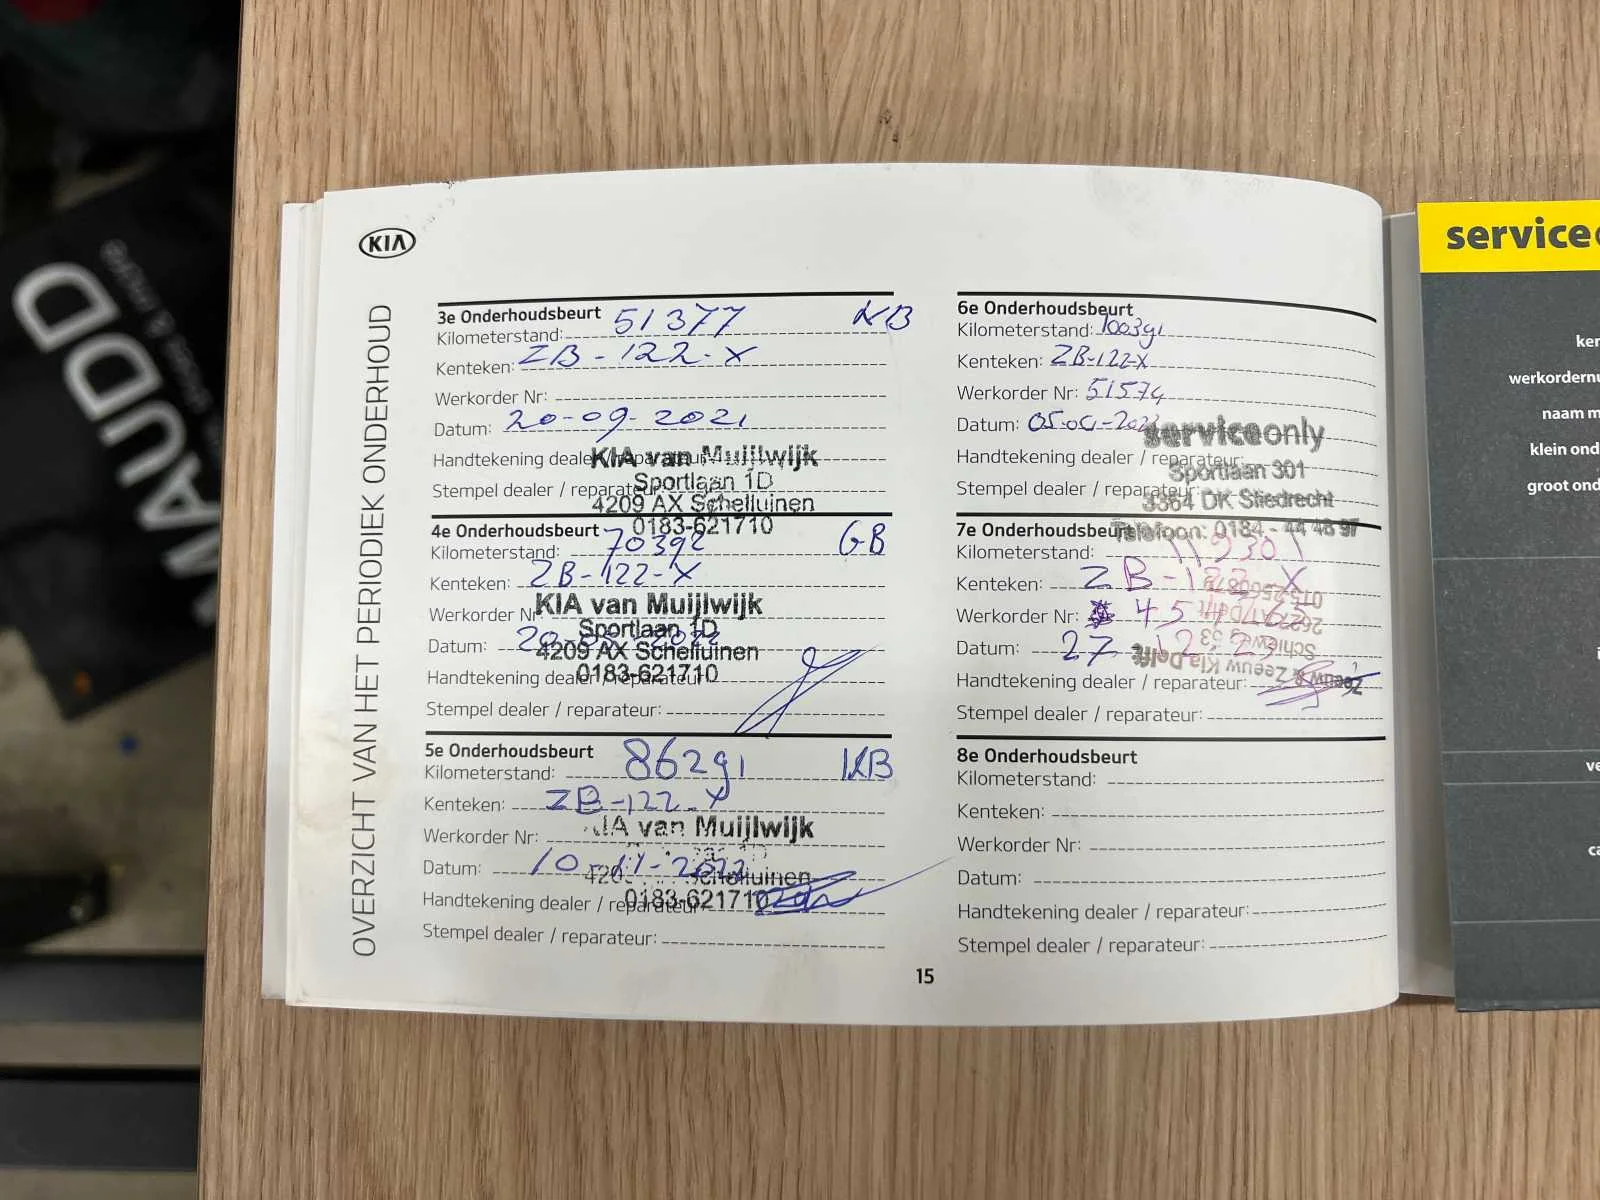 KIA
OVERZICHT VAN HET PERIODIEK ONDERHOUD
3e Onderhoudsbeurt
Kilometerstand: 51377 KB
Kenteken: ZB-122-X
Werkorder Nr:
Datum: 20-09-2021
Handtekening dealer / reparateur:
Stempel dealer / reparateur:
KIA van Muijlwijk
Sportlaan 1D
4209 AX Schelluinen
0183-621710
4e Onderhoudsbeurt
Kilometerstand: 70392 GB
Kenteken: ZB-122-X
Werkorder Nr:
Datum:
Handtekening dealer / reparateur:
Stempel dealer / reparateur:
KIA van Muijlwijk
Sportlaan 1D
4209 AX Schelluinen
0183-621710
5e Onderhoudsbeurt
Kilometerstand: 86291 KB
Kenteken: ZB-122-X
Werkorder Nr:
Datum: 10-11-2022
Handtekening dealer / reparateur:
Stempel dealer / reparateur:
KIA van Muijlwijk
Schelluinen
0183-621710
6e Onderhoudsbeurt
Kilometerstand: 100391
Kenteken: ZB-122-X
Werkorder Nr: 51574
Datum:
Handtekening dealer / reparateur:
Stempel dealer / reparateur:
serviceonly
Sportlaan 301
3364 DK Sliedrecht
Telefoon: 0184 - 44 48 97
7e Onderhoudsbeurt
Kilometerstand: 119301
Kenteken: ZB-122-X
Werkorder Nr:
Datum: 27-12-23
Handtekening dealer / reparateur:
Stempel dealer / reparateur:
Zeeuw & Zeeuw Kia Delft
Schieweg 53
2627 AT Delft
8e Onderhoudsbeurt
Kilometerstand:
Kenteken:
Werkorder Nr:
Datum:
Handtekening dealer / reparateur:
Stempel dealer / reparateur:
15
service
ken
werkordernu
naam m
klein ond
groot ond
ve
ca